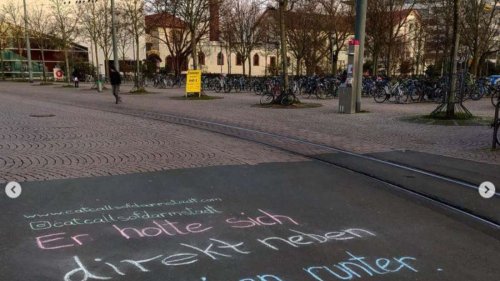 www.catcallsofdarmstadt.com
@catcallsofdarmstadt
Er holte sich
direkt neben
runter.